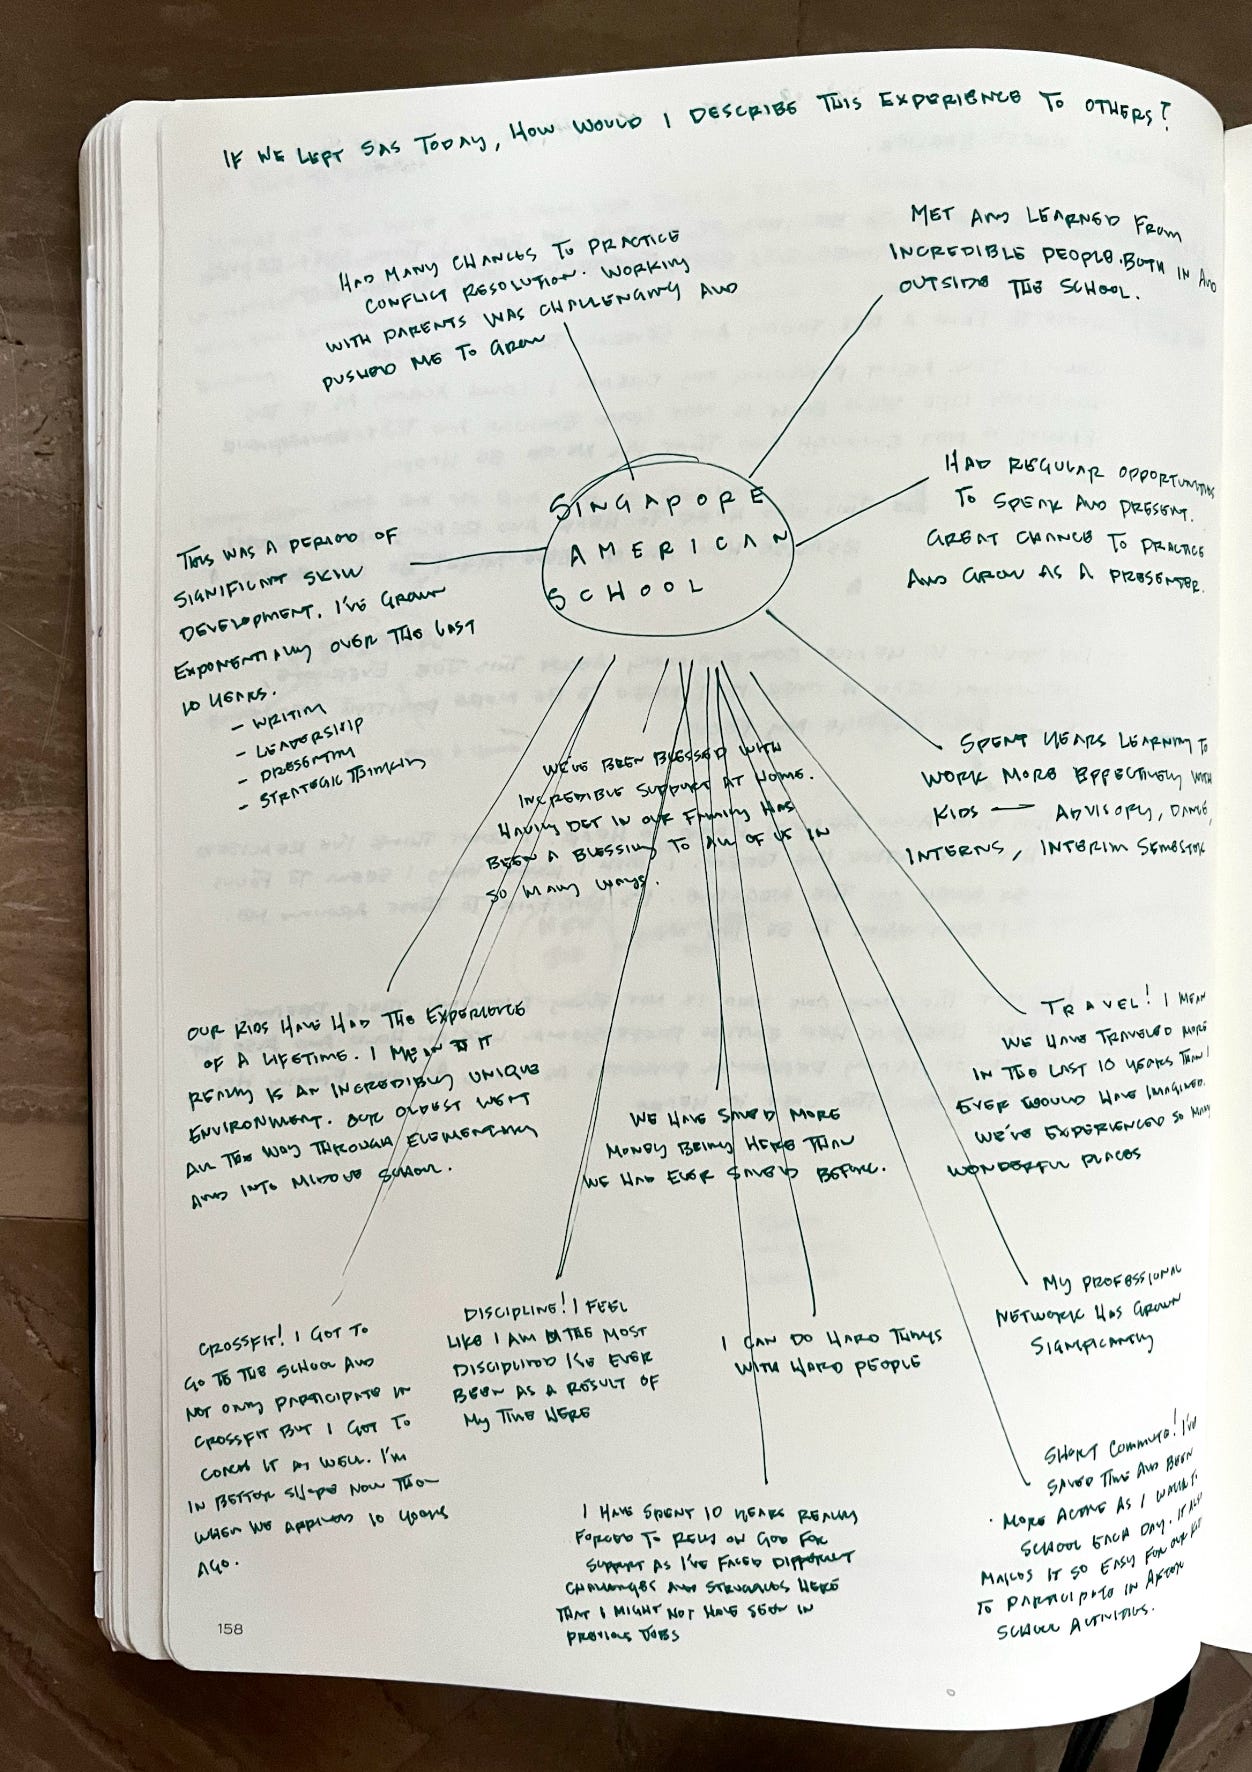 IF WE LEFT SAS TODAY, HOW WOULD I DESCRIBE THIS EXPERIENCE TO OTHERS?
HAD MANY CHANCES TO PRACTICE
CONFLICT RESOLUTION. WORKING
WITH PARENTS WAS CHALLENGING AND
PUSHED ME TO GROW
MET AND LEARNED FROM
INCREDIBLE PEOPLE. BOTH IN AND
OUTSIDE THE SCHOOL.
SINGAPORE
AMERICAN
SCHOOL
HAD REGULAR OPPORTUNITIES
TO SPEAK AND PRESENT.
GREAT CHANCE TO PRACTICE
AND GROW AS A PRESENTER.
THIS WAS A PERIOD OF
SIGNIFICANT SKILL
DEVELOPMENT. I'VE GROWN
EXPONENTIALLY OVER THE LAST
10 YEARS.
- WRITING
- LEADERSHIP
- PRESENTING
- STRATEGIC THINKING
WE'VE BEEN BLESSED WITH
INCREDIBLE SUPPORT AT HOME.
HAVING DET IN OUR FAMILY HAS
BEEN A BLESSING TO ALL OF US IN
SO MANY WAYS.
SPENT YEARS LEARNING TO
WORK MORE EFFECTIVELY WITH
KIDS → ADVISORY, DANCE,
INTERNS, INTERIM SEMESTER
OUR KIDS HAVE HAD THE EXPERIENCE
OF A LIFETIME. I MEAN IT
REALLY IS AN INCREDIBLY UNIQUE
ENVIRONMENT. OUR OLDEST WENT
ALL THE WAY THROUGH ELEMENTARY
AND INTO MIDDLE SCHOOL.
WE HAVE SAVED MORE
MONEY BEING HERE THAN
WE HAD EVER SAVED BEFORE.
TRAVEL! I MEAN
WE HAVE TRAVELED MORE
IN THE LAST 10 YEARS THAN I
EVER WOULD HAVE IMAGINED.
WE'VE EXPERIENCED SO MANY
WONDERFUL PLACES
CROSSFIT! I GOT TO
GO TO THE SCHOOL AND
NOT ONLY PARTICIPATE IN
CROSSFIT BUT I GOT TO
COACH IT AS WELL. I'M
IN BETTER SHAPE NOW THAN
WHEN WE ARRIVED 10 YEARS
AGO.
DISCIPLINE! I FEEL
LIKE I AM THE MOST
DISCIPLINED I'VE EVER
BEEN AS A RESULT OF
MY TIME HERE
I CAN DO HARD THINGS
WITH HARD PEOPLE
MY PROFESSIONAL
NETWORK HAS GROWN
SIGNIFICANTLY
I HAVE SPENT 10 YEARS REALLY
FORCED TO RELY ON GOD FOR
SUPPORT AS I'VE FACED DIFFERENT
CHALLENGES AND STRUGGLES HERE
THAT I MIGHT NOT HAVE SEEN IN
PREVIOUS JOBS
SHORT COMMUTE! I'VE
SAVED TIME AND BEEN
MORE ACTIVE AS I WALK TO
SCHOOL EACH DAY. IT ALSO
MAKES IT SO EASY FOR OUR KIDS
TO PARTICIPATE IN AFTER
SCHOOL ACTIVITIES.
158